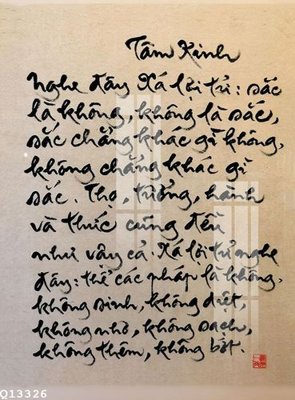 Tâm Kinh
Nghe đây Xá lợi tử: sắc
là không, không là sắc,
sắc chẳng khác gì không,
không chẳng khác gì
sắc. Thọ, tưởng, hành
và thức cũng đều
như vậy cả. Xá lợi tử nghe
đây: thể các pháp là không,
không sinh, không diệt,
không nhơ, không sạch,
không thêm, không bớt.
Q13326